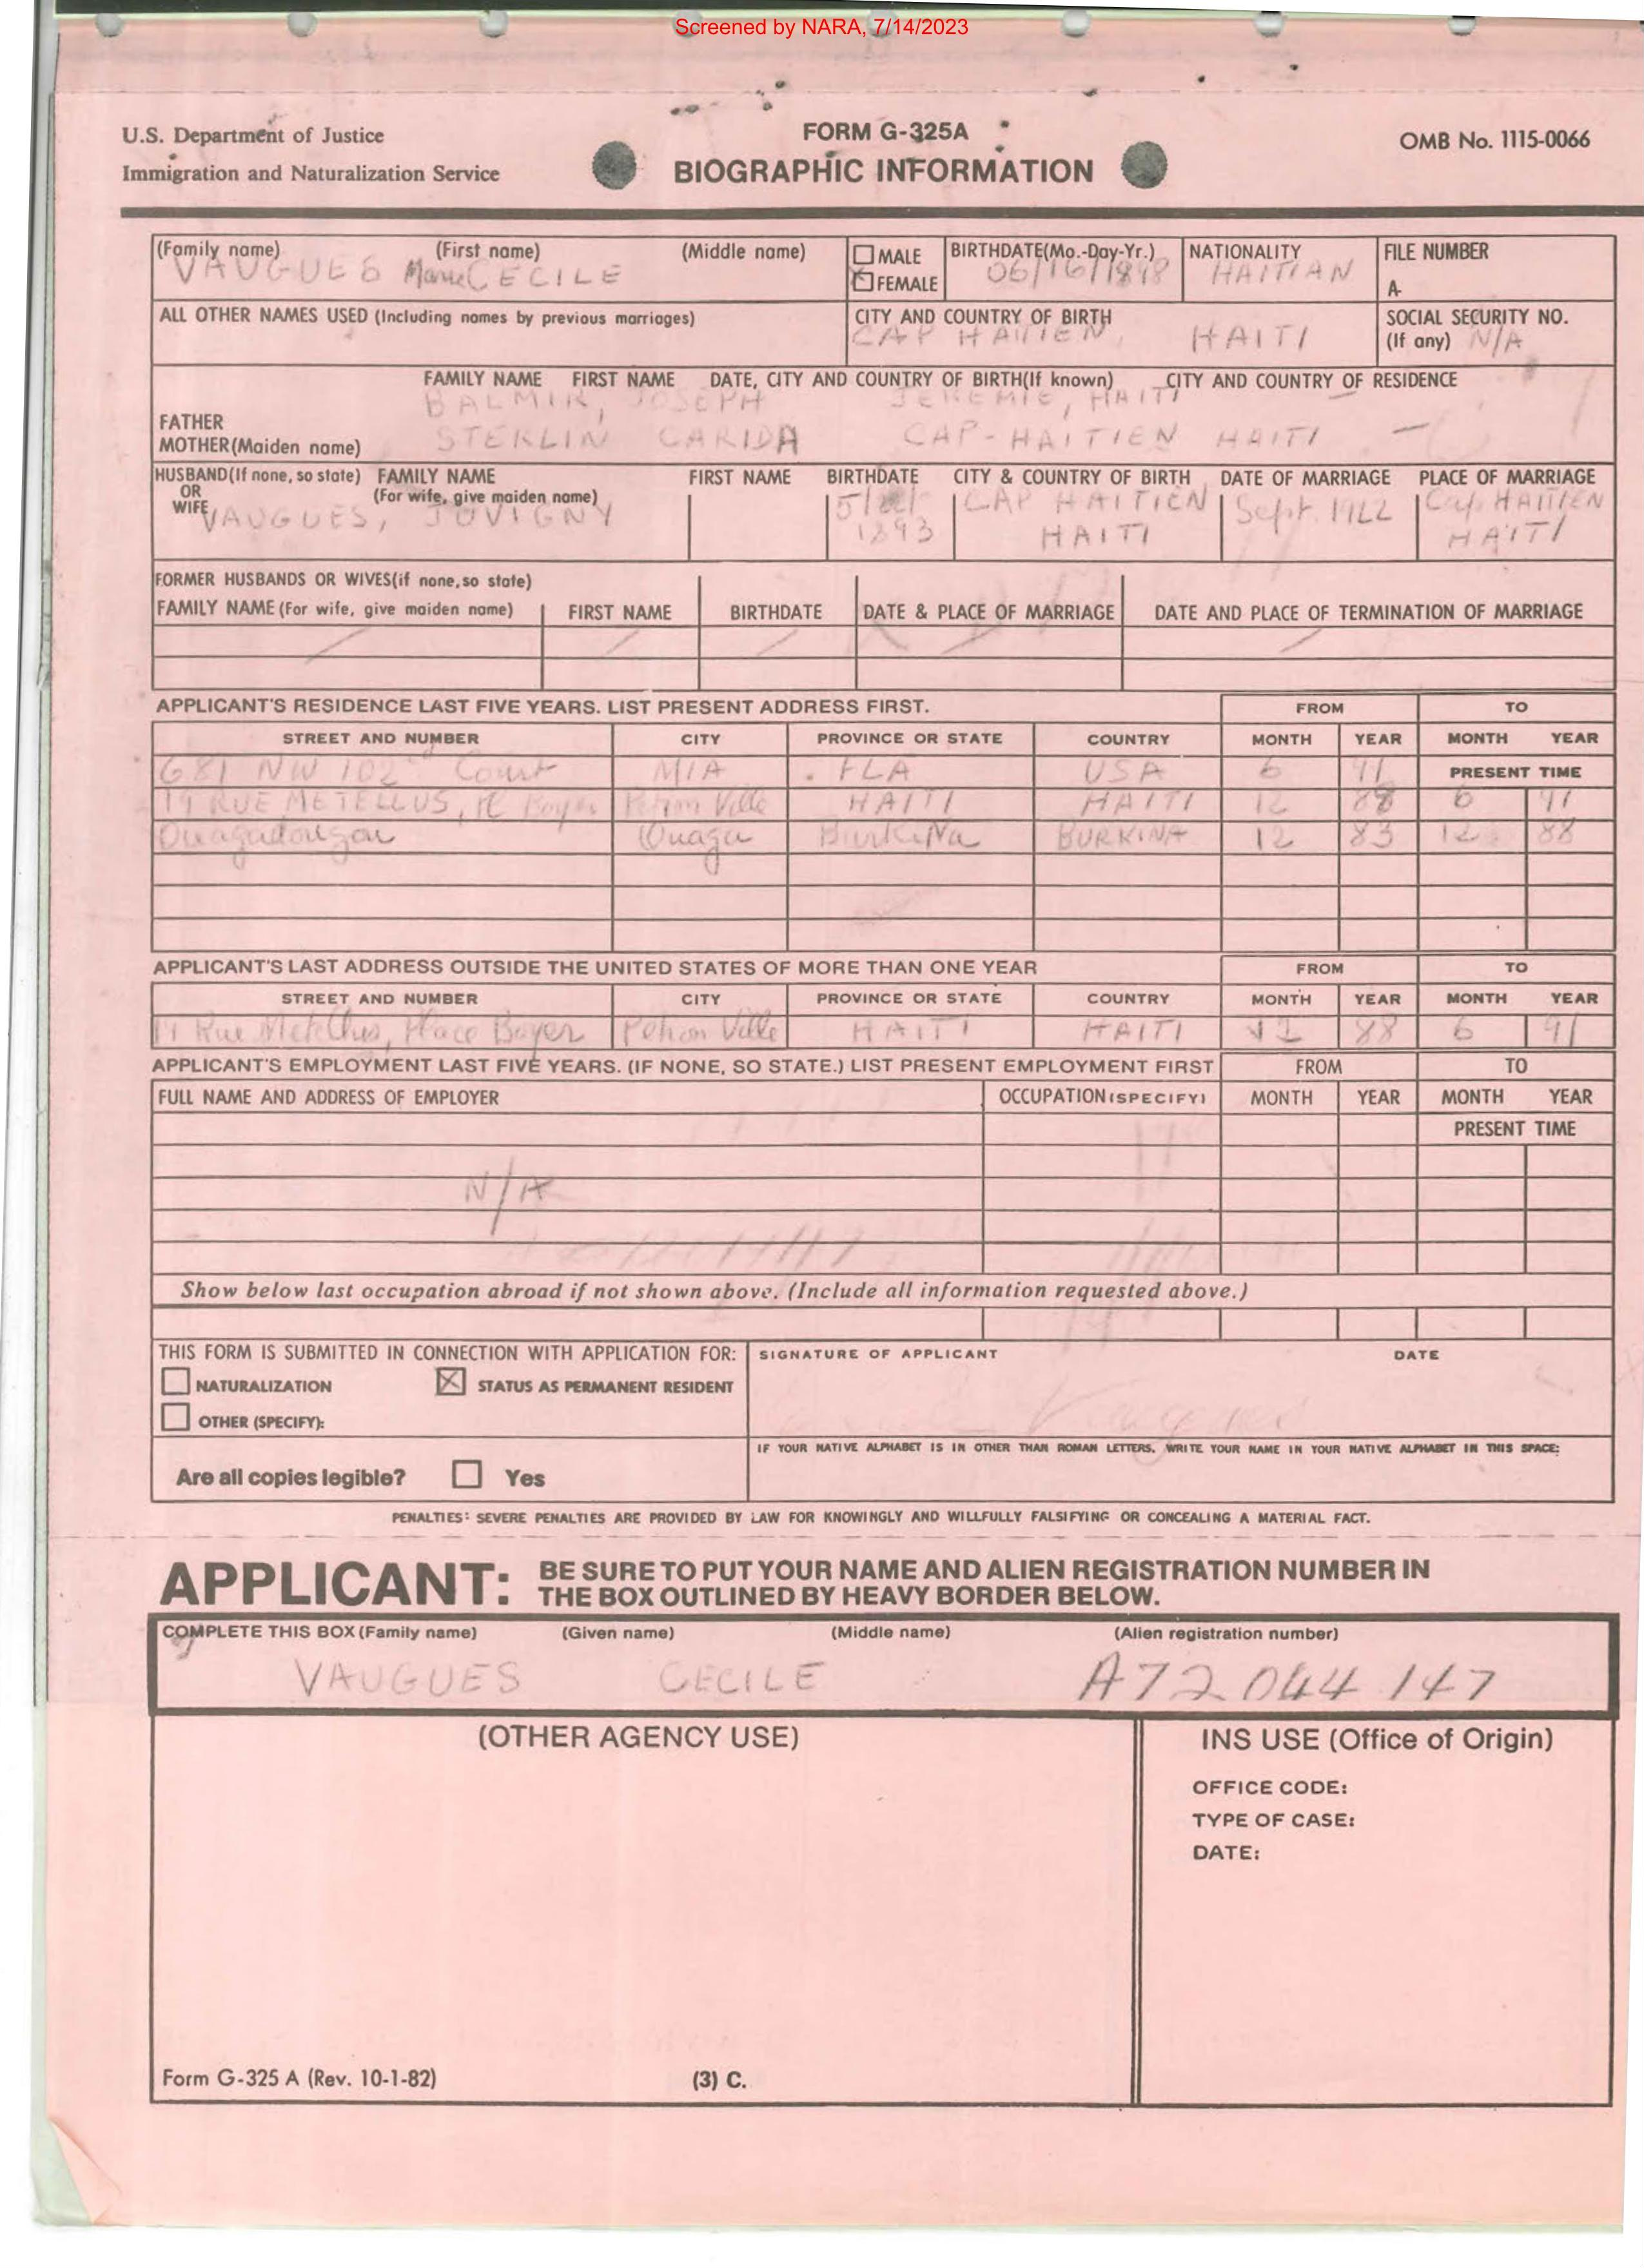 Screened by NARA, 7/14/2023
U.S. Department of Justice
Immigration and Naturalization Service
FORM G-325A
BIOGRAPHIC INFORMATION
OMB No. 1115-0066
(Family name) (First name) (Middle name) MALE BIRTHDATE(Mo.-Day-Yr.) NATIONALITY FILE NUMBER
VAUGUES Marie CECILE FEMALE 06/16/1898 HAITIAN A-
ALL OTHER NAMES USED (Including names by previous marriages) CITY AND COUNTRY OF BIRTH SOCIAL SECURITY NO.
CAP HAITIEN, HAITI (If any) N/A
FAMILY NAME FIRST NAME DATE, CITY AND COUNTRY OF BIRTH(If known) CITY AND COUNTRY OF RESIDENCE
FATHER BALMIR, JOSEPH JEREMIE, HAITI
MOTHER(Maiden name) STERLIN CARIDA CAP-HAITIEN HAITI —
HUSBAND(If none, so state) FAMILY NAME FIRST NAME BIRTHDATE CITY & COUNTRY OF BIRTH DATE OF MARRIAGE PLACE OF MARRIAGE
OR (For wife, give maiden name)
WIFE VAUGUES, JUVIGNY 5/ CAP HAITIEN Sept. 1922 Cap. HAITIEN
1893 HAITI HAITI
FORMER HUSBANDS OR WIVES(if none,so state)
FAMILY NAME (For wife, give maiden name) FIRST NAME BIRTHDATE DATE & PLACE OF MARRIAGE DATE AND PLACE OF TERMINATION OF MARRIAGE
APPLICANT'S RESIDENCE LAST FIVE YEARS. LIST PRESENT ADDRESS FIRST. FROM TO
STREET AND NUMBER CITY PROVINCE OR STATE COUNTRY MONTH YEAR MONTH YEAR
681 NW 102nd Court MIA . FLA USA 6 91 PRESENT TIME
19 RUE METELLUS, Pl Boyer Petion Ville HAITI HAITI 12 88 6 91
Ouagadougou Ouaga BurkiNa BURKINA 12 83 12 88
APPLICANT'S LAST ADDRESS OUTSIDE THE UNITED STATES OF MORE THAN ONE YEAR FROM TO
STREET AND NUMBER CITY PROVINCE OR STATE COUNTRY MONTH YEAR MONTH YEAR
19 Rue Metellus, Place Boyer Petion Ville HAITI HAITI 12 88 6 91
APPLICANT'S EMPLOYMENT LAST FIVE YEARS. (IF NONE, SO STATE.) LIST PRESENT EMPLOYMENT FIRST FROM TO
FULL NAME AND ADDRESS OF EMPLOYER OCCUPATION (SPECIFY) MONTH YEAR MONTH YEAR
PRESENT TIME
N/A
Show below last occupation abroad if not shown above. (Include all information requested above.)
THIS FORM IS SUBMITTED IN CONNECTION WITH APPLICATION FOR: SIGNATURE OF APPLICANT DATE
NATURALIZATION STATUS AS PERMANENT RESIDENT
OTHER (SPECIFY): Vaugues
IF YOUR NATIVE ALPHABET IS IN OTHER THAN ROMAN LETTERS, WRITE YOUR NAME IN YOUR NATIVE ALPHABET IN THIS SPACE:
Are all copies legible? Yes
PENALTIES: SEVERE PENALTIES ARE PROVIDED BY LAW FOR KNOWINGLY AND WILLFULLY FALSIFYING OR CONCEALING A MATERIAL FACT.
APPLICANT: BE SURE TO PUT YOUR NAME AND ALIEN REGISTRATION NUMBER IN
THE BOX OUTLINED BY HEAVY BORDER BELOW.
COMPLETE THIS BOX (Family name) (Given name) (Middle name) (Alien registration number)
VAUGUES CECILE A72 044 147
(OTHER AGENCY USE) INS USE (Office of Origin)
OFFICE CODE:
TYPE OF CASE:
DATE:
Form G-325 A (Rev. 10-1-82) (3) C.